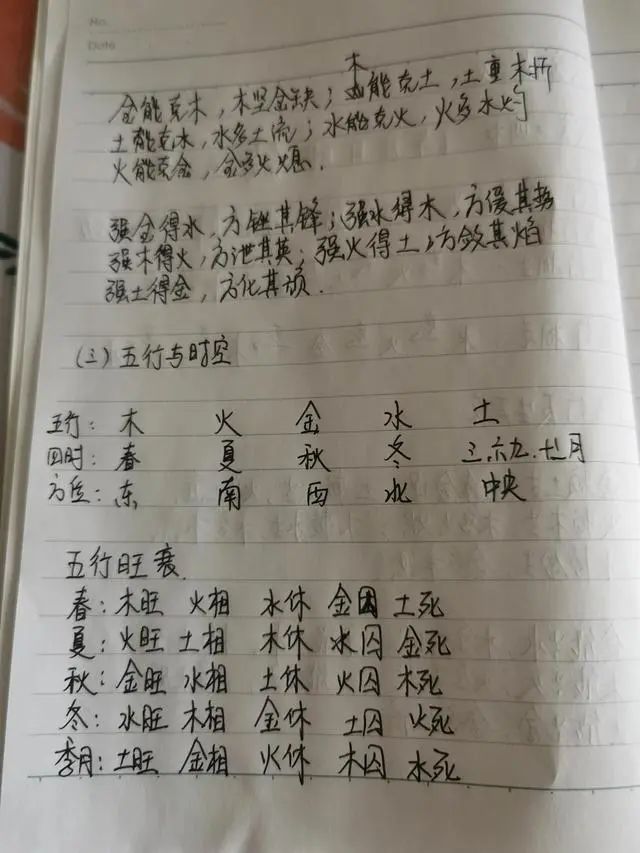 No.
Date
金能克木，木坚金缺；木能克土，土重木折
土能克水，水多土流；水能克火，火多水灼
火能克金，金多火熄．
强金得水，方挫其锋；强水得木，方缓其势
强木得火，方泄其英；强火得土，方敛其焰
强土得金，方化其顽．
（三）五行与时空
五行：木 火 金 水 土
四时：春 夏 秋 冬 三.六.九.十二月
方位：东 南 西 北 中央
五行旺衰
春：木旺 火相 水休 金囚 土死
夏：火旺 土相 木休 水囚 金死
秋：金旺 水相 土休 火囚 木死
冬：水旺 木相 金休 土囚 火死
季月：土旺 金相 火休 木囚 水死